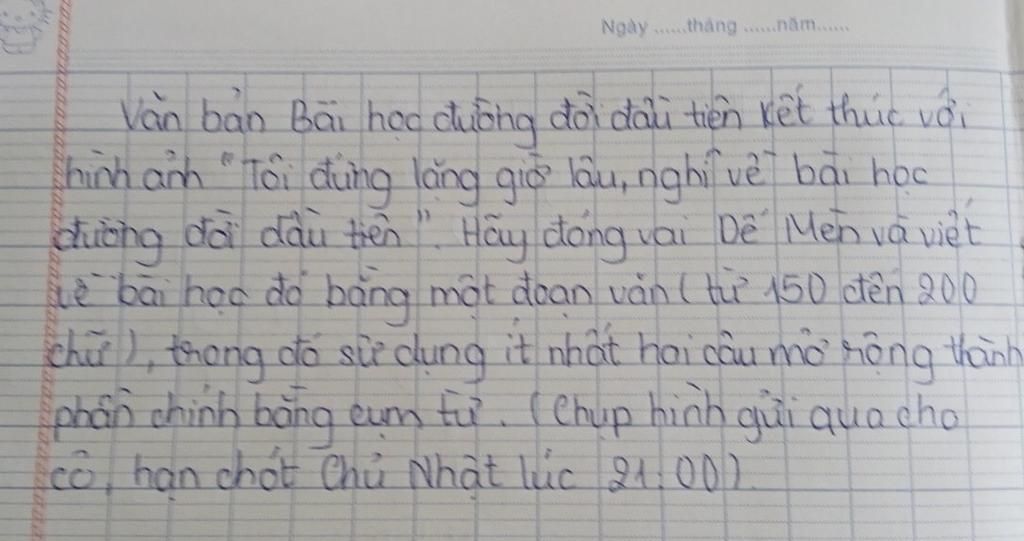 Ngày ......tháng ......năm......
Văn bản Bài học đường đời đầu tiên kết thúc với
hình ảnh "Tôi đứng lặng giờ lâu, nghĩ về bài học
đường đời đầu tiên". Hãy đóng vai Dế Mèn và viết
về bài học đó bằng một đoạn văn (từ 150 đến 200
chữ), trong đó sử dụng ít nhất hai câu mở rộng thành
phần chính bằng cụm từ. (Chụp hình gửi qua cho
cô, hạn chót Chủ Nhật lúc 21:00)